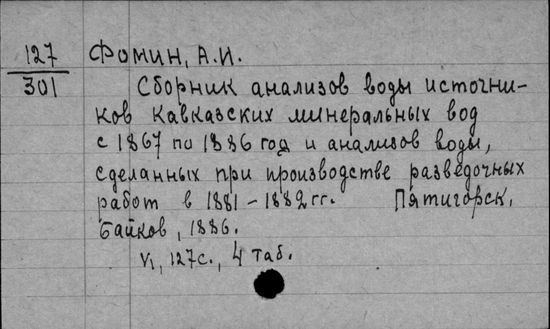 127 Фомин, А.И.
301 Сборник анализов воды источни-
ков Кавказских минеральных вод
с 1867 по 1886 год и анализов воды,
сделанных при производстве разведочных
работ в 1881-1882 гг. Пятигорск,
Байков, 1886.
VI, 127с., 4 таб.